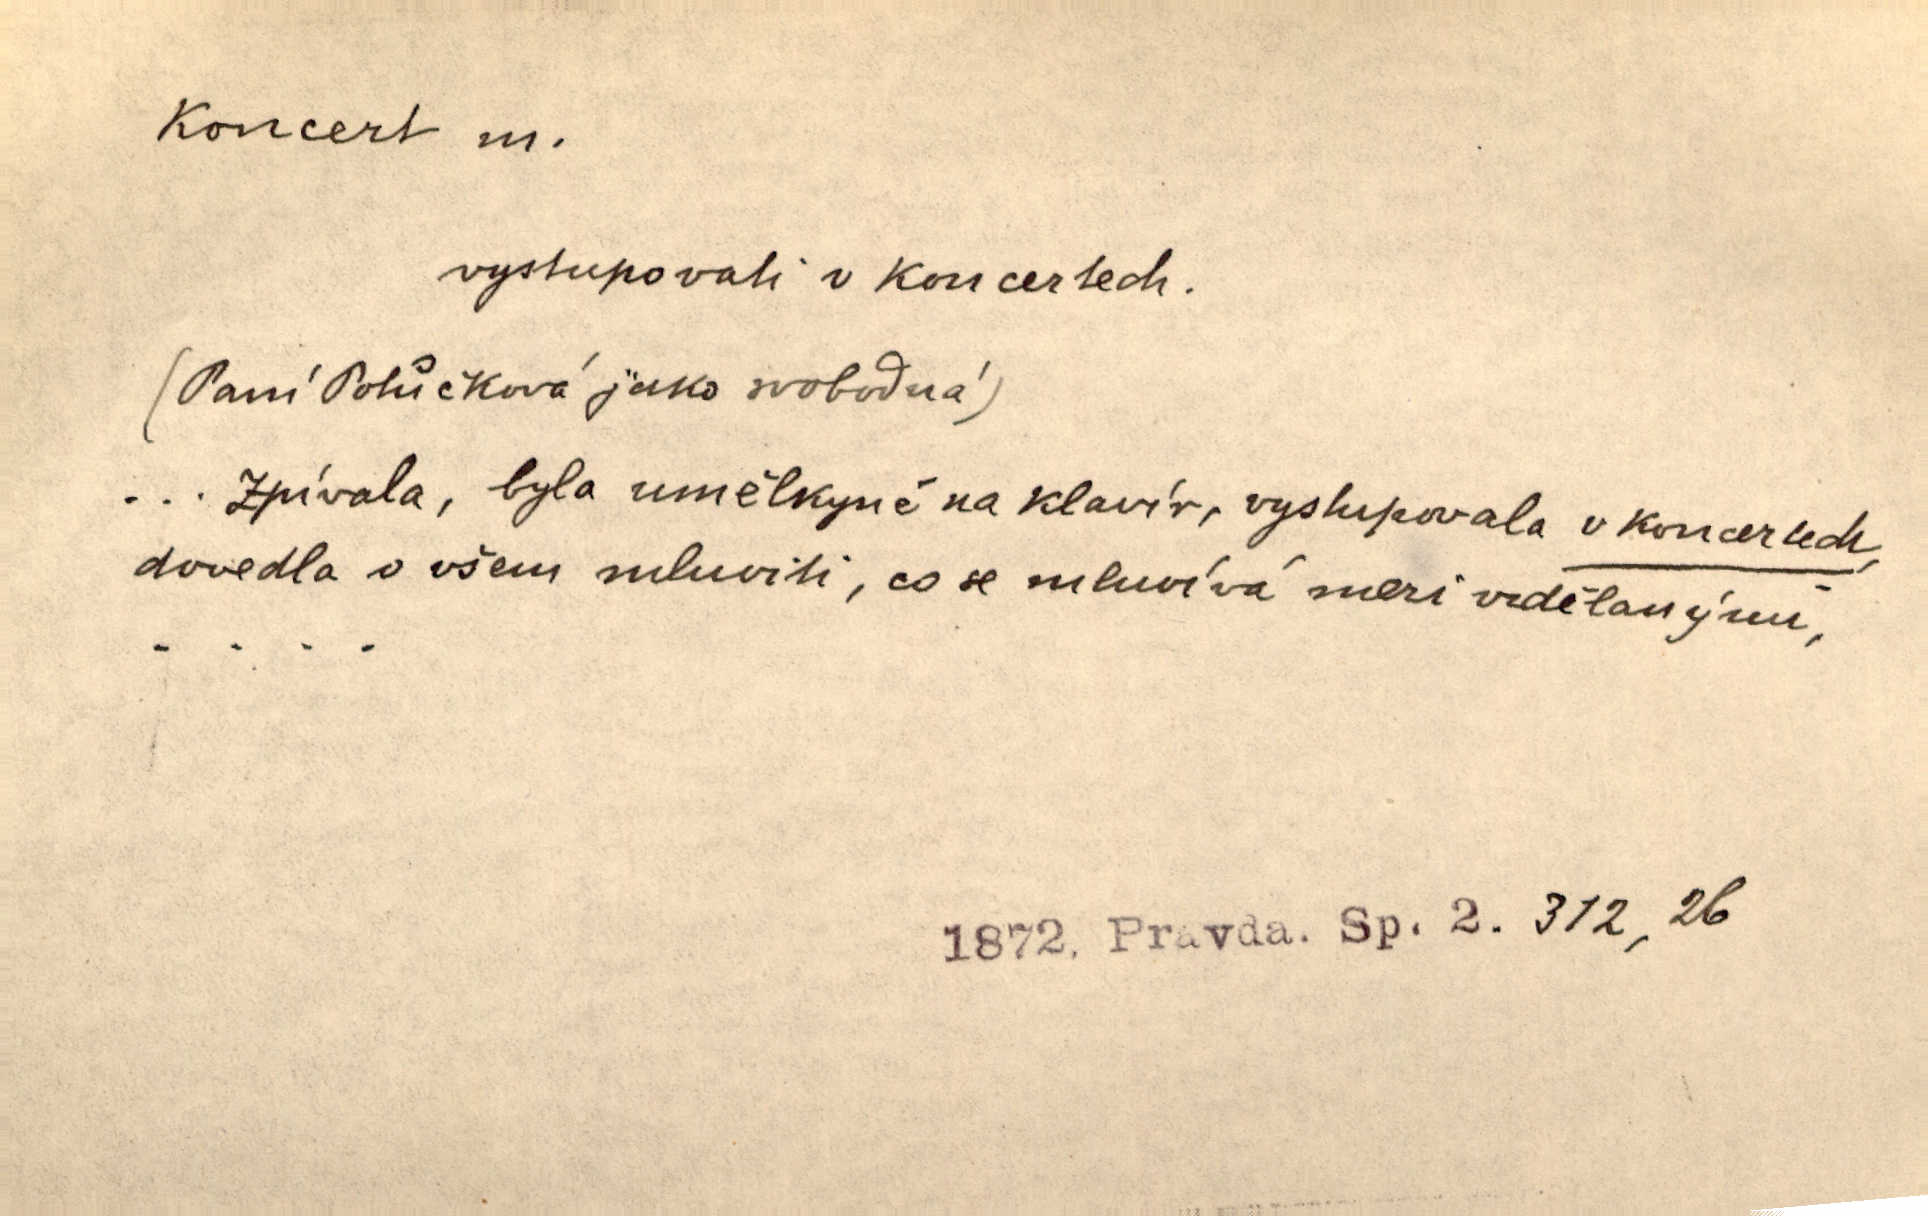 Koncert m.
vystupovati v koncertech.
(Paní Potůčková jako svobodná)
... Zpívala, byla umělkyně na klavír, vystupovala v koncertech,
dovedla o všem mluviti, co se mluvívá mezi vzdělanými,
. . . .
1872. Pravda. Sp. 2. 312, 26